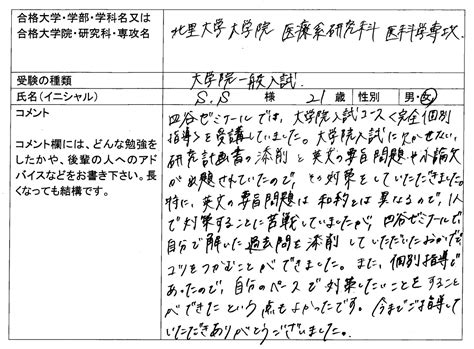 合格大学・学部・学科名又は
合格大学院・研究科・専攻名
北里大学大学院 医療系研究科 医科学専攻.
受験の種類
大学院一般入試.
氏名（イニシャル）
S.S 様 21歳 性別 男・女
コメント
コメント欄には、どんな勉強を
したかや、後輩の人へのアド
バイスなどをお書き下さい。長
くなっても結構です。
四谷ゼミナールでは、大学院入試コース〈完全個別
指導〉を受講していました。大学院入試に欠かせない
研究計画書の添削と英文の要旨問題や小論文
が出題されていたので、その対策をしていただきました。
特に、英文の要旨問題は和約とは異なるので、1人
で対策することに苦戦していましたが、四谷ゼミナールで
自分で解いた過去問を添削していただいたおかげで、
コツをつかむことができました。また、個別指導で
あったので、自分のペースで対策したいことをすること
ができたという点もよかったです。今までご指導して
いただきありがとうございました。